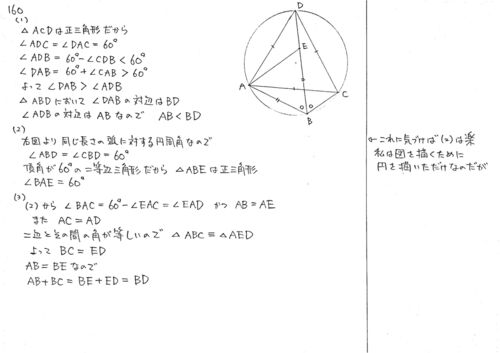 160
(1)
△ACDは正三角形だから
∠ADC=∠DAC=60°
∠ADB=60°-∠CDB<60°
∠DAB=60°+∠CAB>60°
よって∠DAB>∠ADB
△ABDにおいて∠DABの対辺はBD
∠ADBの対辺はABなので AB<BD
(2)
右図より同じ長さの弧に対する円周角なので
∠ABD=∠CBD=60°
頂角が60°の二等辺三角形だから △ABEは正三角形
∠BAE=60°
(3)
(2)から ∠BAC=60°-∠EAC=∠EAD かつ AB=AE
また AC=AD
二辺とその間の角が等しいので △ABC≡△AED
よって BC=ED
AB=BEなので
AB+BC=BE+ED=BD
D
E
A
C
B
←これに気づけば(2)は楽
私は図を描くために
円を描いただけなのだが